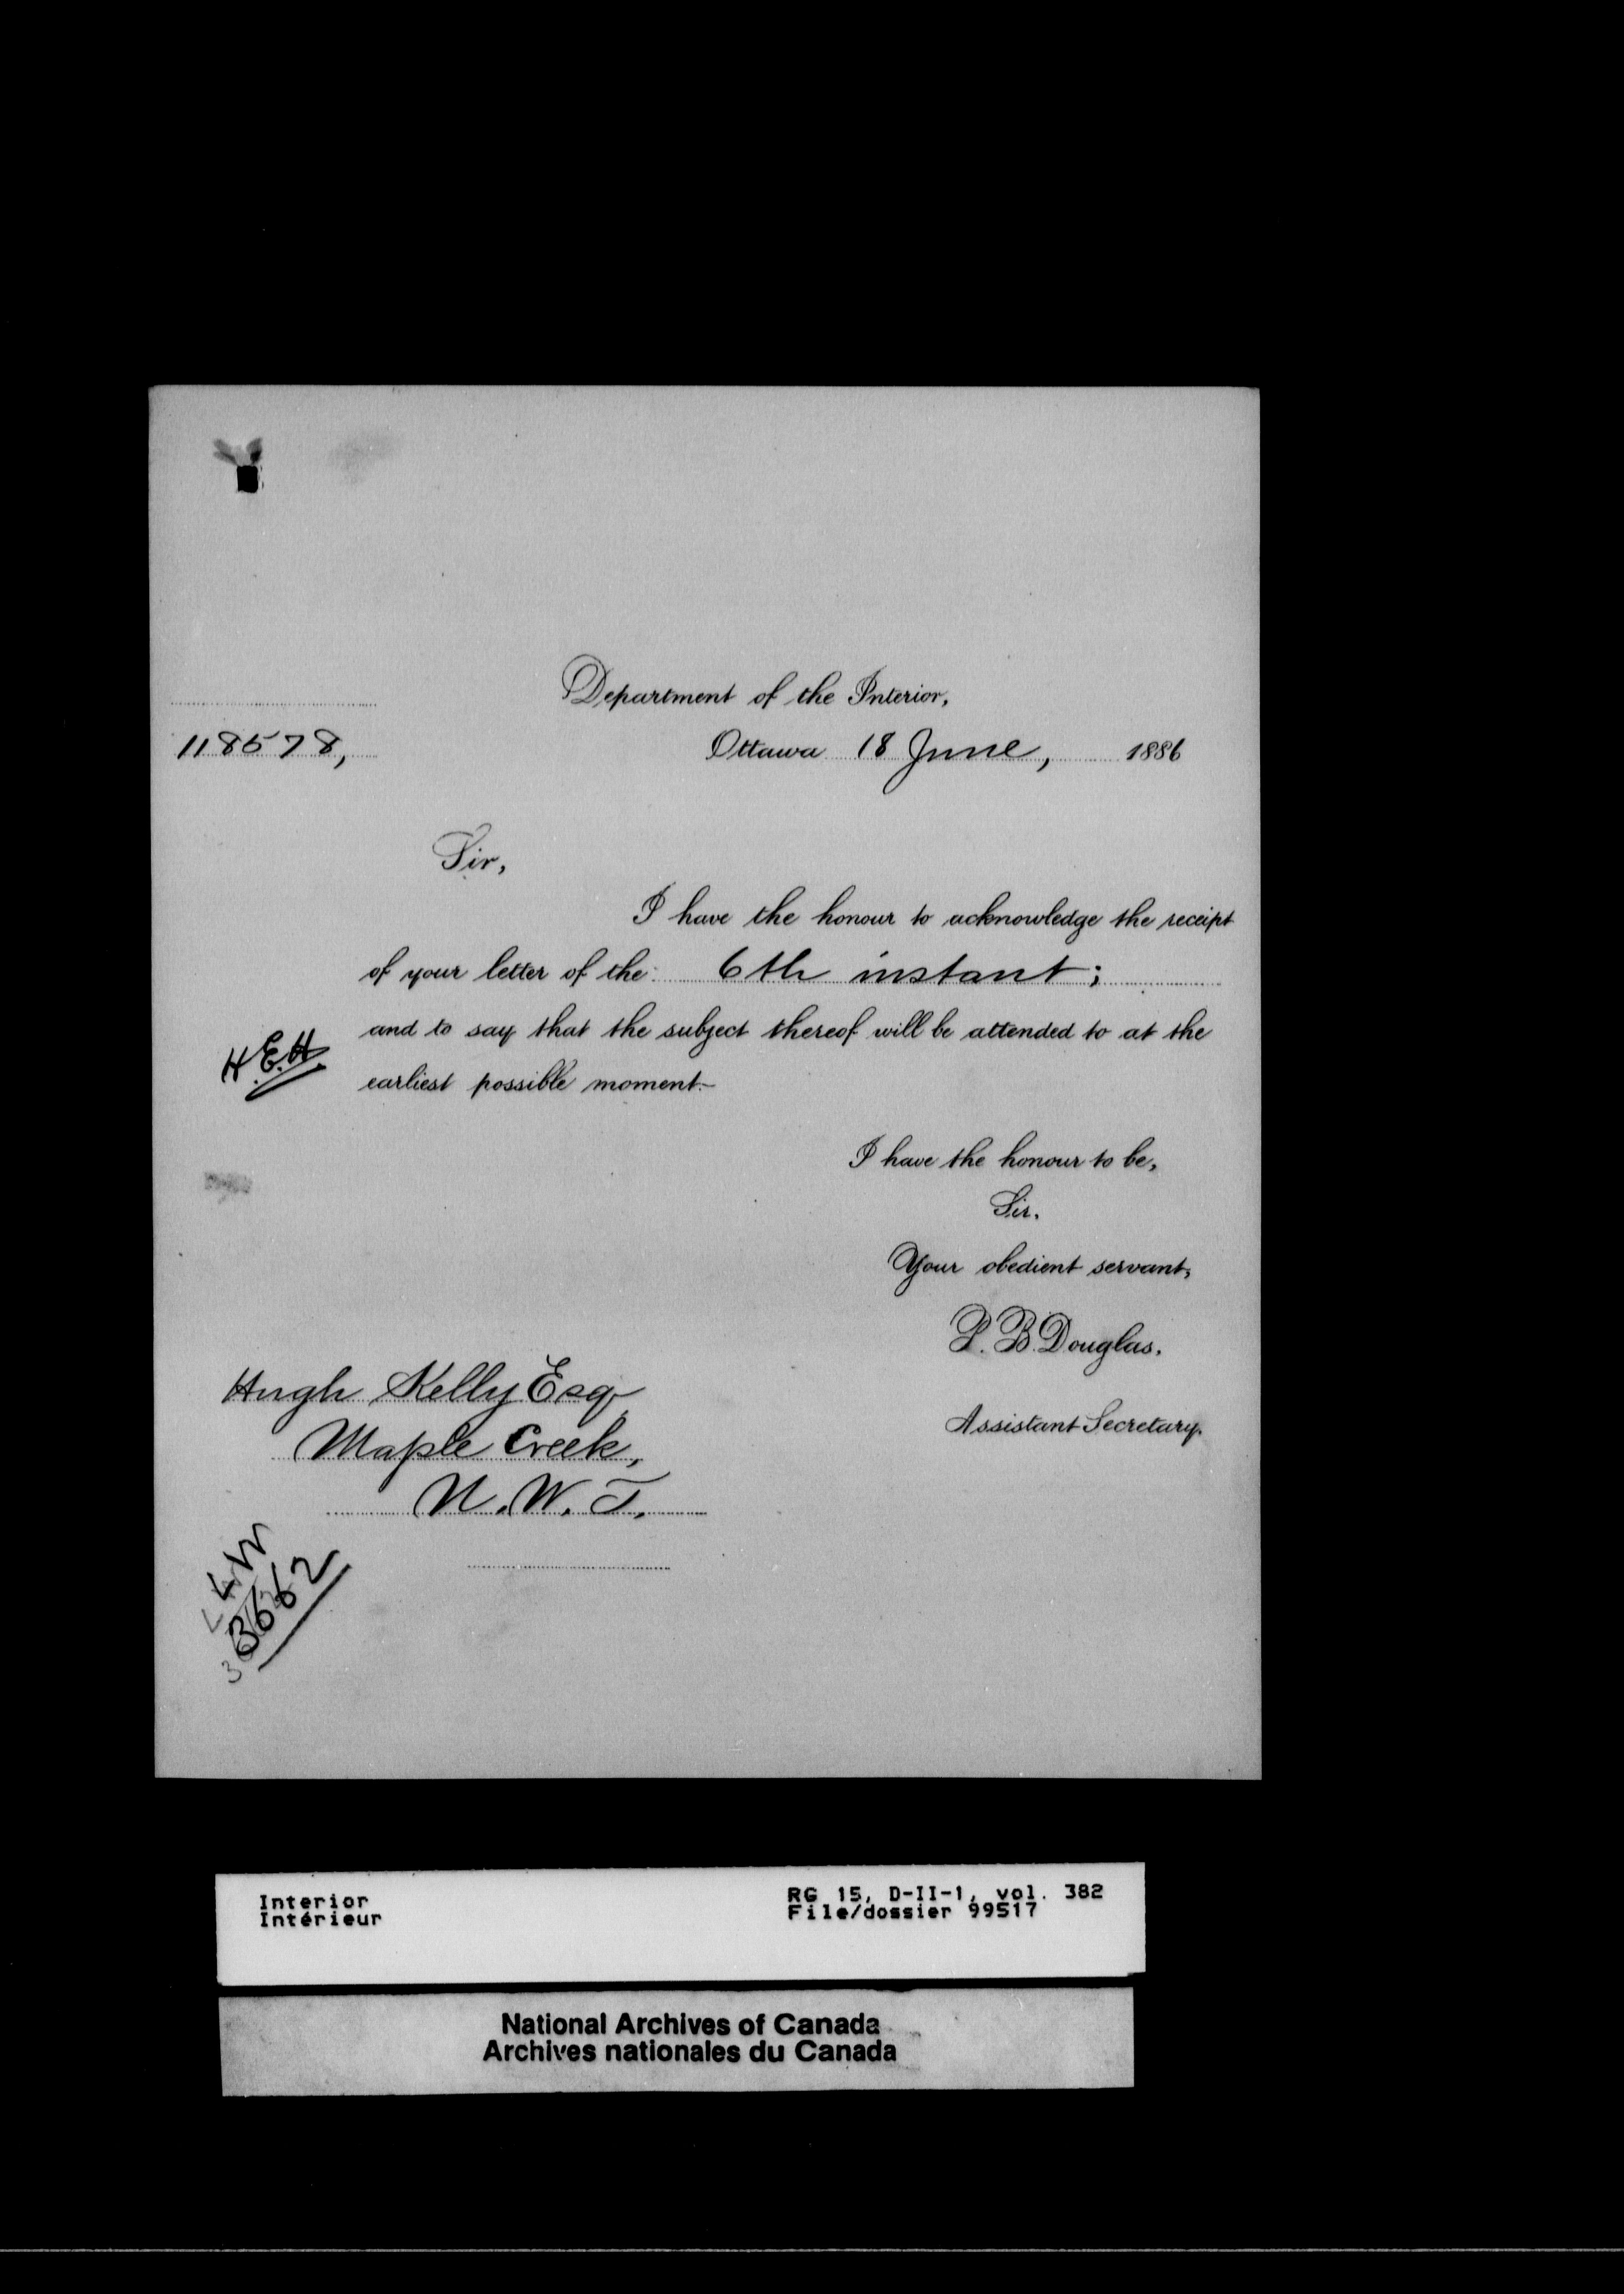 Department of the Interior,
118578,
Ottawa 18 June, 1886
Sir,
I have the honour to acknowledge the receipt
of your letter of the 6th instant;
and to say that the subject thereof will be attended to at the
earliest possible moment.
H.E.H.
I have the honour to be,
Sir.
Your obedient servant,
P. B. Douglas.
Assistant Secretary.
Hugh Kelly Esq
Maple Creek,
N.W.T.
3662
Interior
Intérieur
RG 15, D-II-1, vol. 382
File/dossier 99517
National Archives of Canada
Archives nationales du Canada